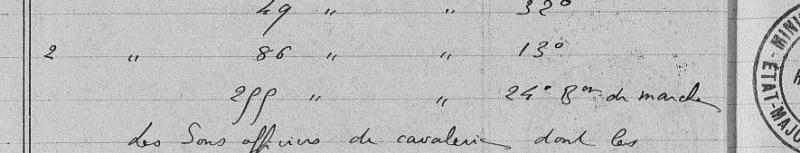 49 " " 32°
2 " 86 " " 13°
299 " " 24° Bon de marche
Les Sous officiers de cavalerie dont les
MINI
ÉTAT-MAJO